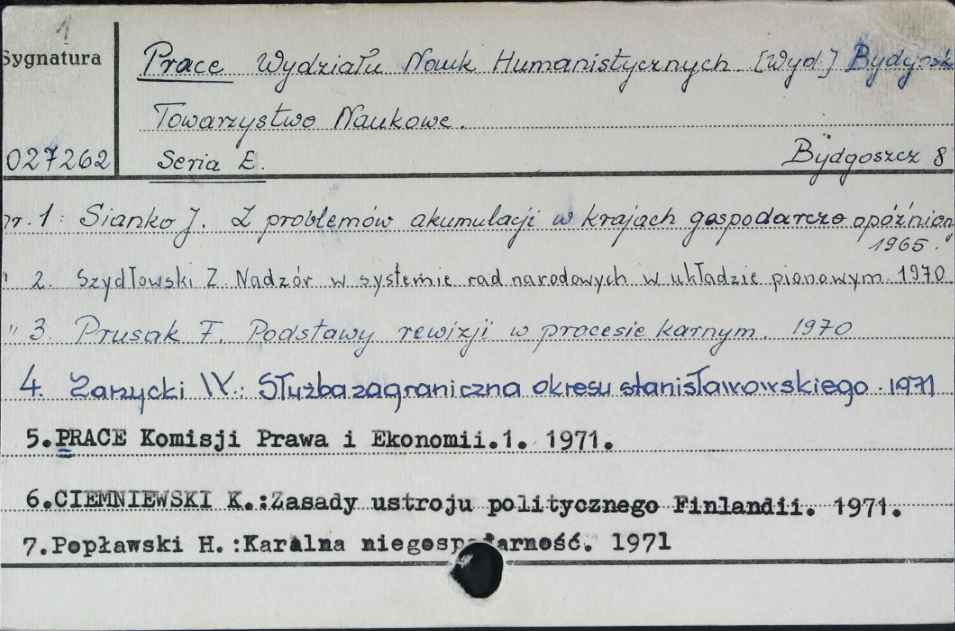 1
Sygnatura
Prace Wydziału Nauk Humanistycznych [Wyd.] Bydgosk
Towarzystwo Naukowe.
027262 Seria E. Bydgoszcz 8°
nr. 1: Sianko J. Z problemów akumulacji w krajach gospodarczo opóźnian
1965.
" 2. Szydłowski Z. Nadzór w systemie rad narodowych w układzie pionowym. 1970
" 3. Prusak F. Podstawy rewizji w procesie karnym. 1970
4. Zarzycki W.: Służba zagraniczna okresu stanisławowskiego. 1971
5.PRACE Komisji Prawa i Ekonomii.1. 1971.
6.CIEMNIEWSKI K.:Zasady ustroju politycznego Finlandii. 1971.
7.Popławski H.:Karalna 1971